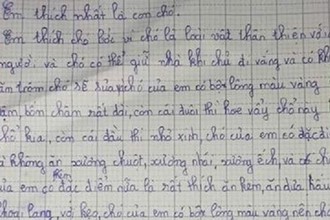 Em thích nhất là con chó.
Em thích chó bởi vì chó là loài vật thân thiện với
người. và chó có thể giữ nhà khi chủ đi vắng và có
ăn trộm chó sẽ sủa, chó của em có bộ lông màu vàng
bốn chân rất dài, còn cái đuôi thì hoe vẩy chỗ này
chỗ kia, còn cái đầu thì nhỏ xinh, chó của em có đặc
không ăn xương chuột, xương nhái, xương ếch, và
của em có đặc điểm nữa là rất thích ăn kem, ăn dưa hấu
khoai lang, và kẹo, chó của em có bộ lông màu vàng nên